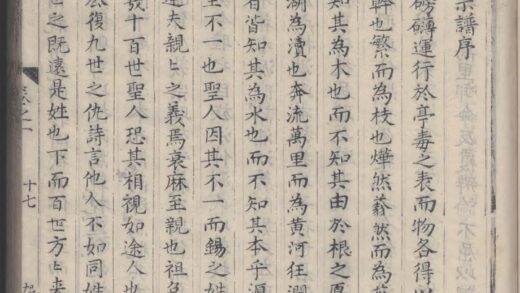 宗譜序
磅礴運行於亭毒之表而物各得以
幹也繁而為枝也燁然蓊然而為
知其為木也而不知其由於根之
湖為瀆也奔流萬里而為黃河狂瀾
者皆知其為水也而不知其本乎源
至不一也聖人因其不一而錫之姓
達夫親𠄠之義焉衰麻至親也祖免
幾十百世聖人恐其相視如途人也
復九世之仇詩言他人不如同姓
之既遠是姓也下而百世方𠄠来
卷之一
十七